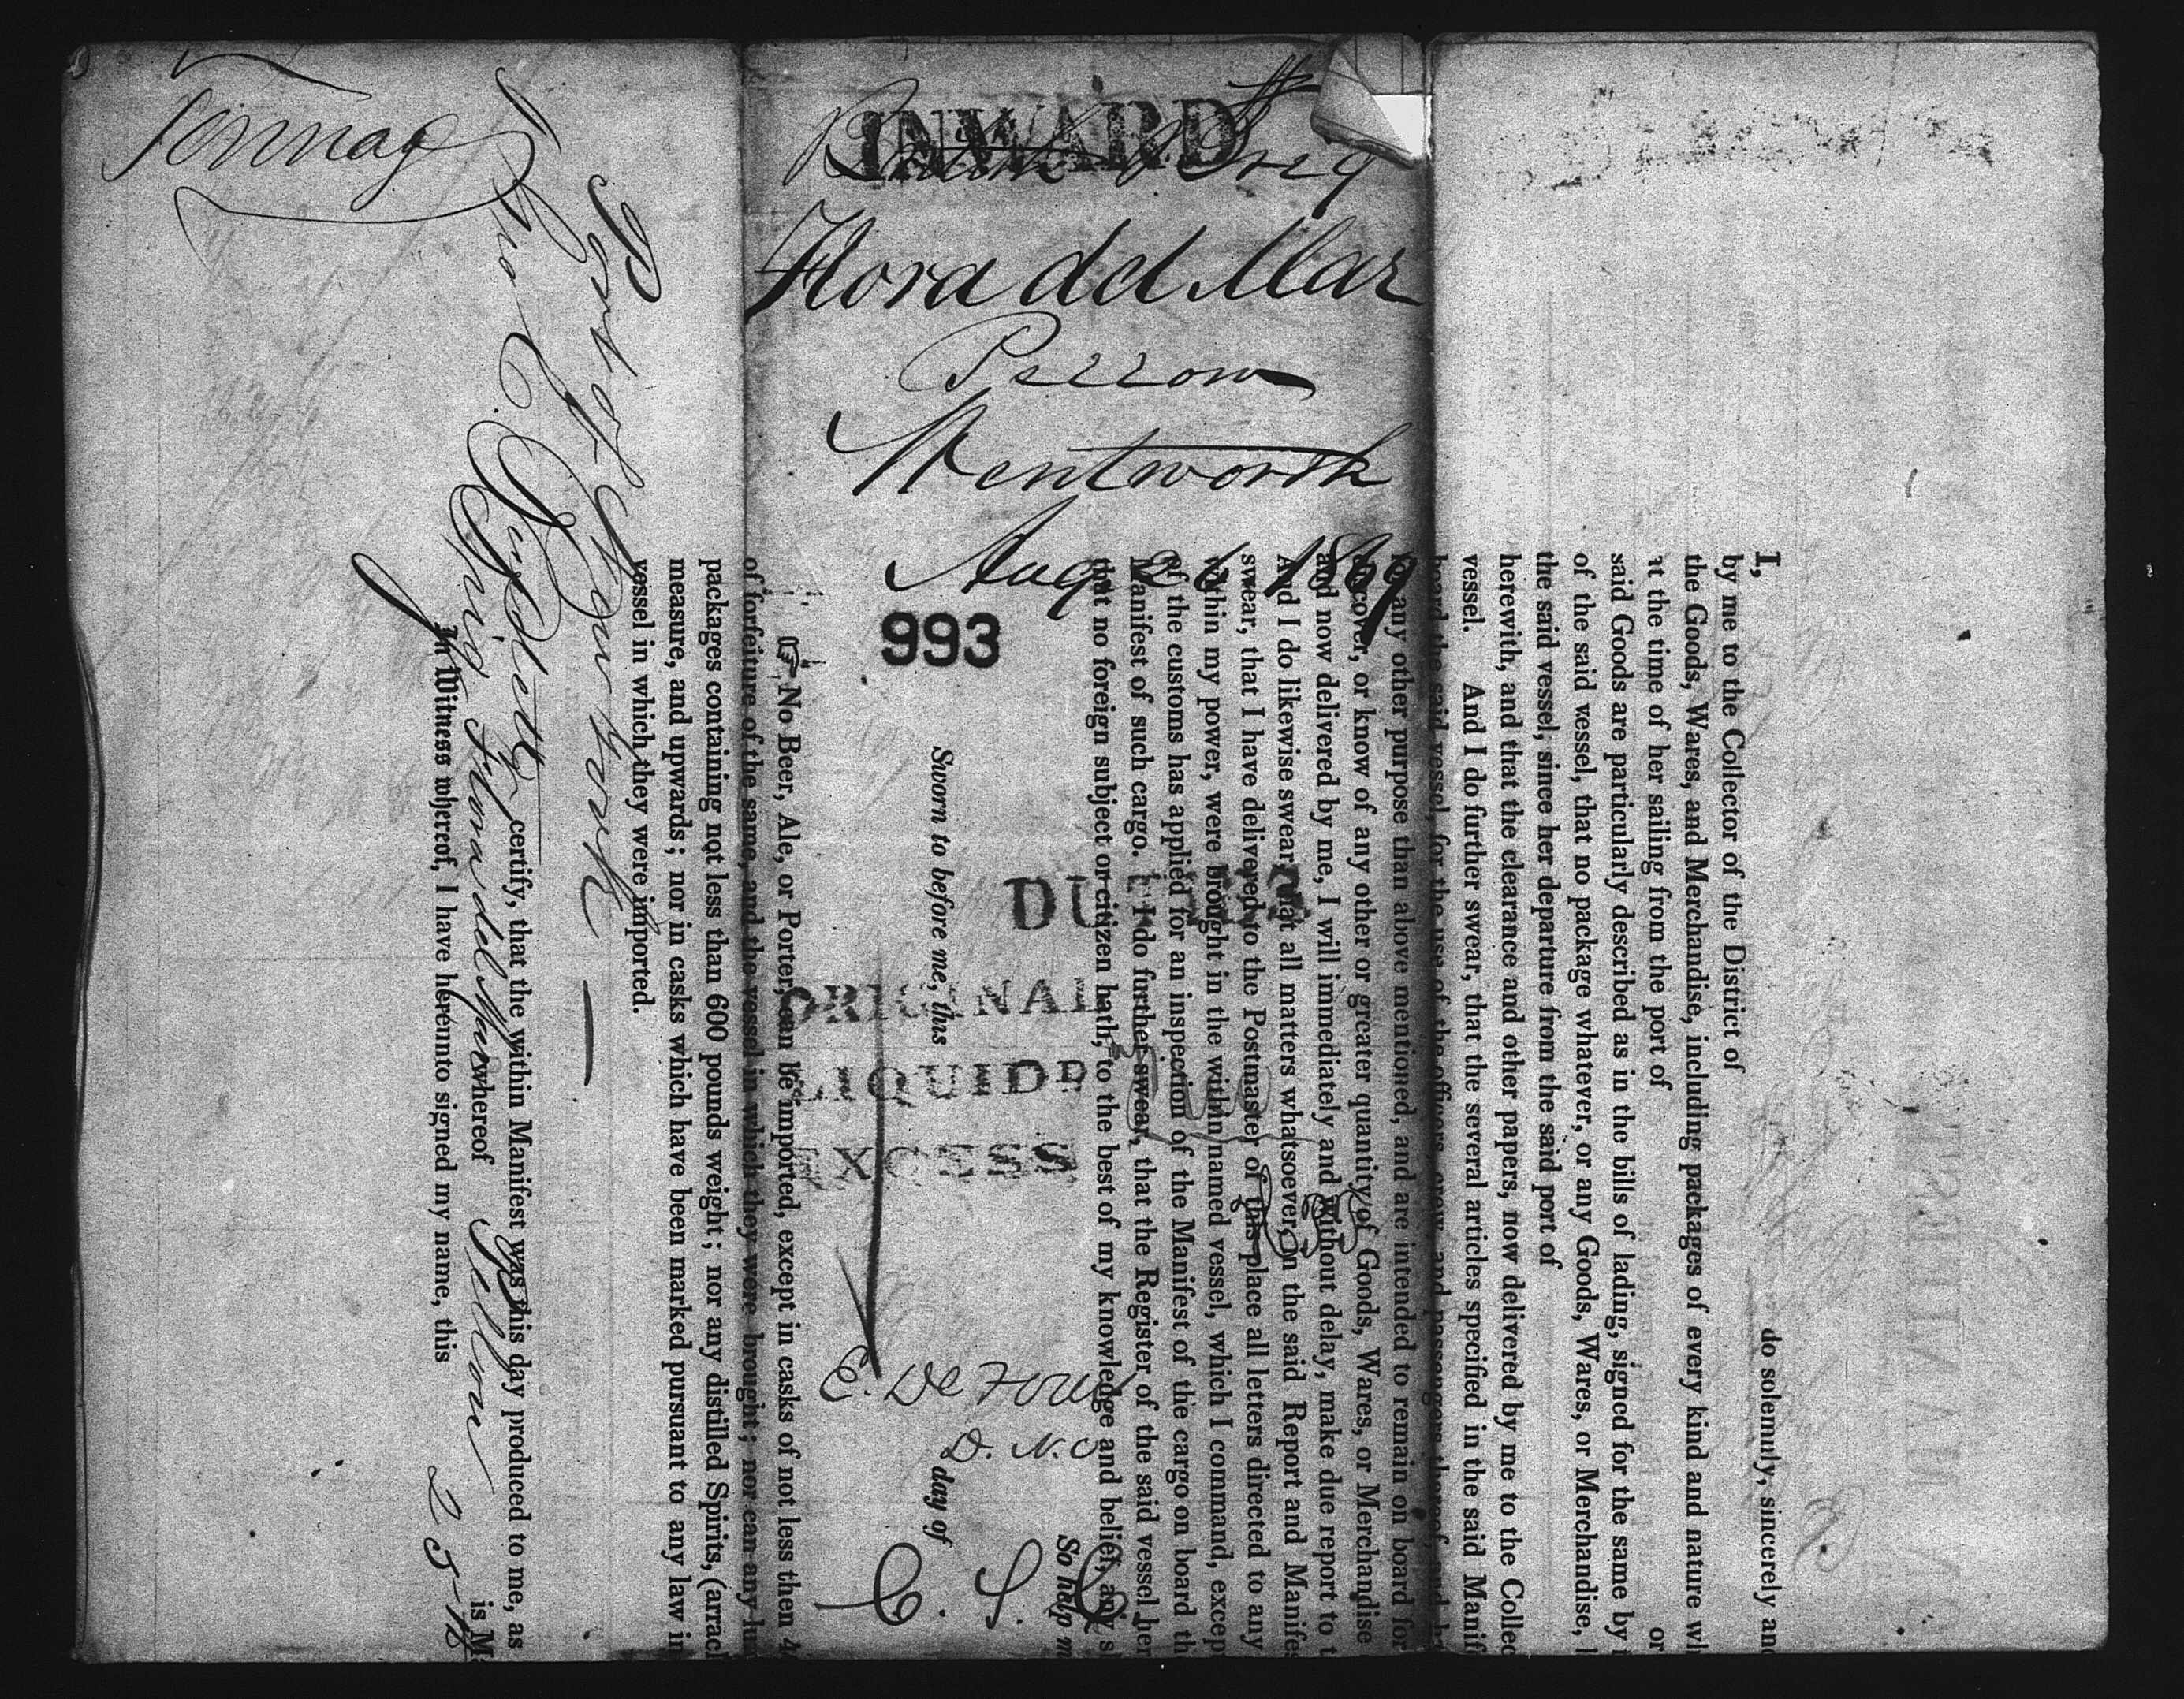 Tonnag
INWARD
British Brig
Flora del Mar
Perron
Wentworth
Aug 26 1869
993
ORIGINAL
LIQUIDD
EXCESS
E. De
D. N. O
Port of New York
certify, that the within Manifest was this day produced to me, as
Brig Flora del Mar whereof is M
In Witness whereof, I have hereunto signed my name, this 25
I, do solemnly, sincerely an
by me to the Collector of the District of
the Goods, Wares, and Merchandise, including packages of every kind and nature wh
at the time of her sailing from the port of or
said Goods are particularly described as in the bills of lading, signed for the same by
of the said vessel, that no package whatever, or any Goods, Wares, or Merchandise,
the said vessel, since her departure from the said port of
herewith, and that the clearance and other papers, now delivered by me to the Collec
vessel. And I do further swear, that the several articles specified in the said Manif
board the said vessel, for the use of the officers, crew, and passengers thereof,
any other purpose than above mentioned, and are intended to remain on board for
cover, or know of any other or greater quantity of Goods, Wares, or Merchandise
and now delivered by me, I will immediately and without delay, make due report to t
And I do likewise swear that all matters whatsoever, in the said Report and Manifes
swear, that I have delivered to the Postmaster of this place all letters directed to any
within my power, were brought in the within named vessel, which I command, excep
of the customs has applied for an inspection of the Manifest of the cargo on board th
Manifest of such cargo. I do further swear, that the Register of the said vessel her
that no foreign subject or citizen hath, to the best of my knowledge and belief, any s
So help m
Sworn to before me, this day of
☞ No Beer, Ale, or Porter, can be imported, except in casks of not less then 4
of forfeiture of the same, and the vessel in which they were brought; nor can any
packages containing not less than 600 pounds weight; nor any distilled Spirits, (arrac
measure, and upwards; nor in casks which have been marked pursuant to any law i
vessel in which they were imported.